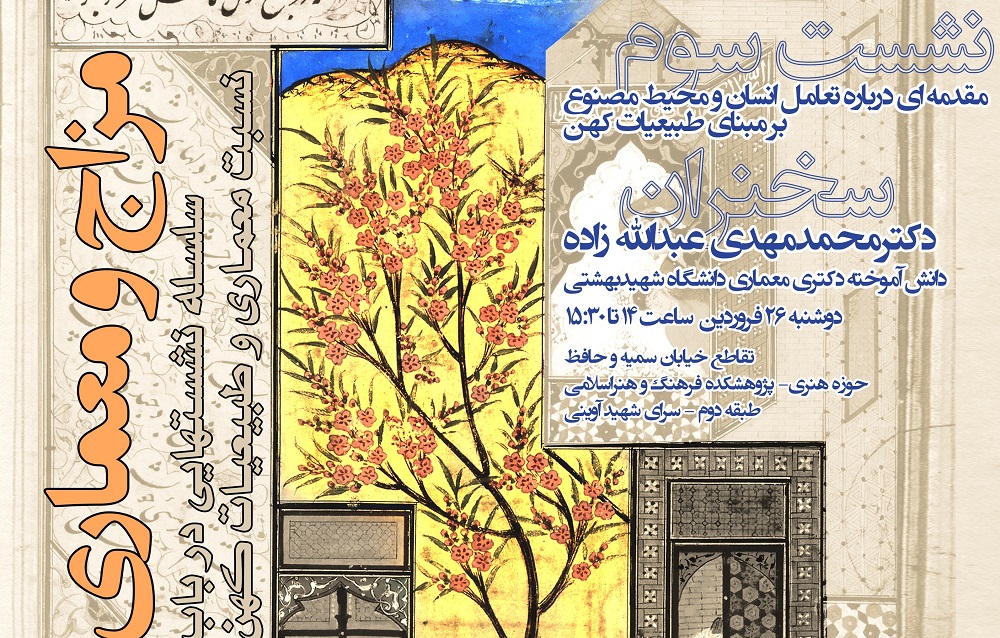 نشست سوم
مقدمه ای درباره تعامل انسان و محیط مصنوع
بر مبنای طبیعیات کهن
سخنران
دکتر محمدمهدی عبدالله زاده
دانش آموخته دکتری معماری دانشگاه شهید بهشتی
دوشنبه ۲۶ فروردین ساعت ۱۴ تا ۱۵:۳۰
تقاطع خیابان سمیه و حافظ
حوزه هنری - پژوهشکده فرهنگ و هنر اسلامی
طبقه دوم - سرای شهید آوینی
مزاج و معماری
سلسله نشستهایی در باب
نسبت معماری و طبیعیات کهن